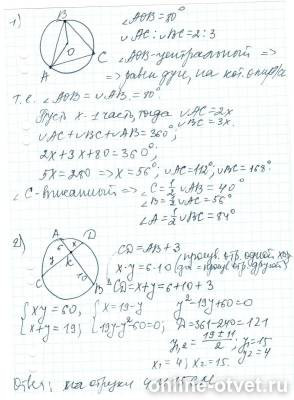 1)
B
O
A
C
∠AOB=80°
∪AC:∪BC=2:3
∠AOB-центральный =>
=> равен дуге, на кот. опира
т.е. ∠AOB=∪AB=80°
Пусть x-1 часть, тогда ∪AC=2x
∪BC=3x.
∪AC+∪BC+∪AB=360°;
2x+3x+80=360°
5x=280 => x=56°; ∪AC=112°; ∪BC=168°
∠C-вписанный => ∠C=½∪AB=40°
∠B=½∪AC=56°
∠A=½∪BC=84°
2)
A
D
6
x
y
K
10
C
B
CD=AB+3
x·y=6·10 (произв. отр. одной хор
да = произв. отр. другой)
CD=x+y=6+10+3
{xy=60,
{x+y=19;
{x=19-y
{19y-y²-60=0;
y²-19y+60=0
Д=361-240=121
y₁,₂=(19±11)/2; y₁=15
y₂=4
x₁=4; x₂=15.
Ответ: на отрезки 4 и 15
online-otvet.ru